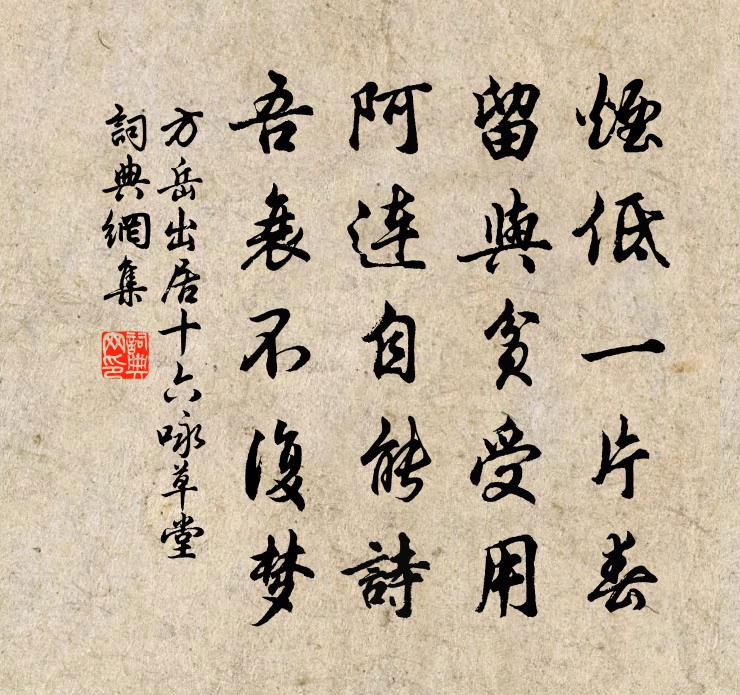 煙低一片春
留與貧受用
阿連自能詩
吾衰不復梦
方岳出居十六咏草堂
詞典網集
詞典網印